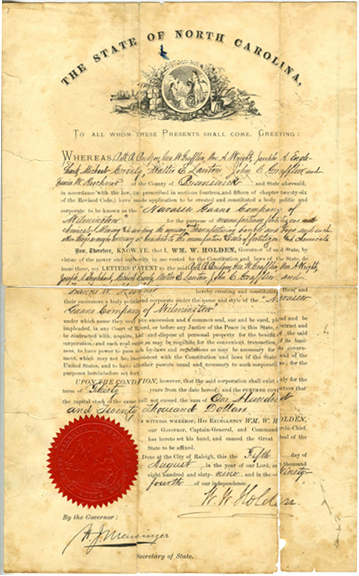 THE STATE OF NORTH CAROLINA,
TO ALL WHOM THESE PRESENTS SHALL COME, GREETING:
WHEREAS, Geo W. Grafflin, Wm. A. Wright,
Michael Cronly, Walter E. Lawton, John C. Grafflin and
of the County of Brunswick and State aforesaid,
in accordance with the law, (as prescribed in sections and fifteen of chapter twenty-six
of the Revised Code,) have made application to be created and constituted a body politic and
corporate to be known as the Navassa Guano Company of
Wilmington for the purpose of manufacturing
manufacturing
other things necessary to the manufacture
Now, Therefore, KNOW YE, that I, WM. W. HOLDEN, Governor of said State, by
virtue of the power and authority, in me vested by the Constitution and laws of the State, do
issue these, my LETTERS PATENT to the said Geo W. Grafflin, Wm A Wright,
Michael Cronly, Walter E. Lawton, John C. Grafflin and
hereby creating and constituting them and
their successors a body politic and corporate under the name and style of the "Navassa
Guano Company of Wilmington"
under which name they may have succession and Common seal, sue and be sued, plead and be
impleaded, in any Court of Record, or before any Justice of the Peace in this State, contract and
be contracted with, acquire, hold and dispose of personal property for the benefit of the said
corporation, and such real estate as may be requisite for the convenient transaction of its busi-
ness, to have power to pass such by-laws and regulations as may be necessary for its govern-
ment, which may not be inconsistent with the Constitution and laws of the State or of the
United States, and to have all other powers usual and necessary to such corporate body, for the
purposes hereinbefore set forth
UPON THE CONDITION, however, that the said corporation shall exist only for the
term of Thirty years from the date hereof; and the FURTHER CONDITION that
the capital stock of the same shall not exceed the sum of One Hundred
and Seventy Thousand Dollars
IN WITNESS WHEREOF, HIS EXCELLENCY WM. W. HOLDEN,
our Governor, Captain-General, and Commander-in-Chief,
has hereto set his hand, and caused the Great Seal of the
State to be affixed.
Done at the City of Raleigh, this the Fifth day of
August in the year of our Lord, one thousand
eight hundred and sixty-nine, and in the Ninety
fourth of our independence
W. W. Holden.
By the Governor:
Secretary of State.